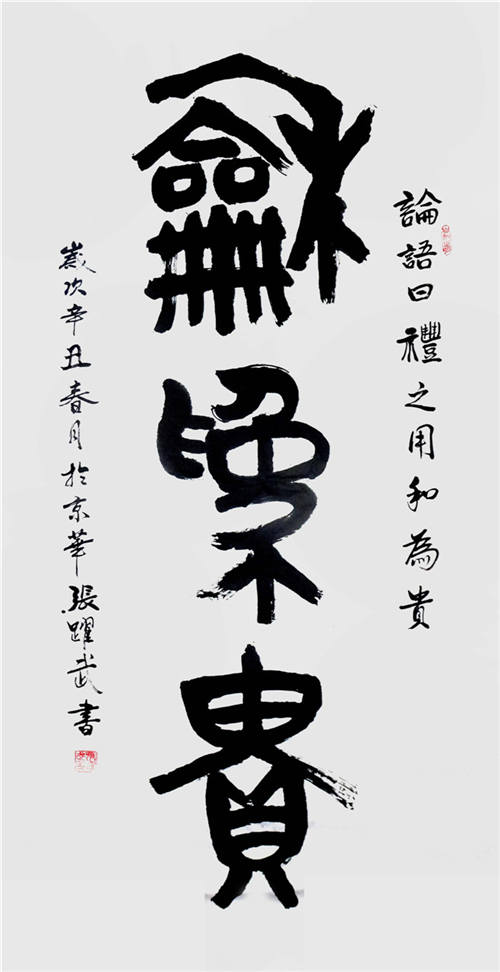 論語曰禮之用和為貴
龢為貴
歲次辛丑春月於京華張躍武書